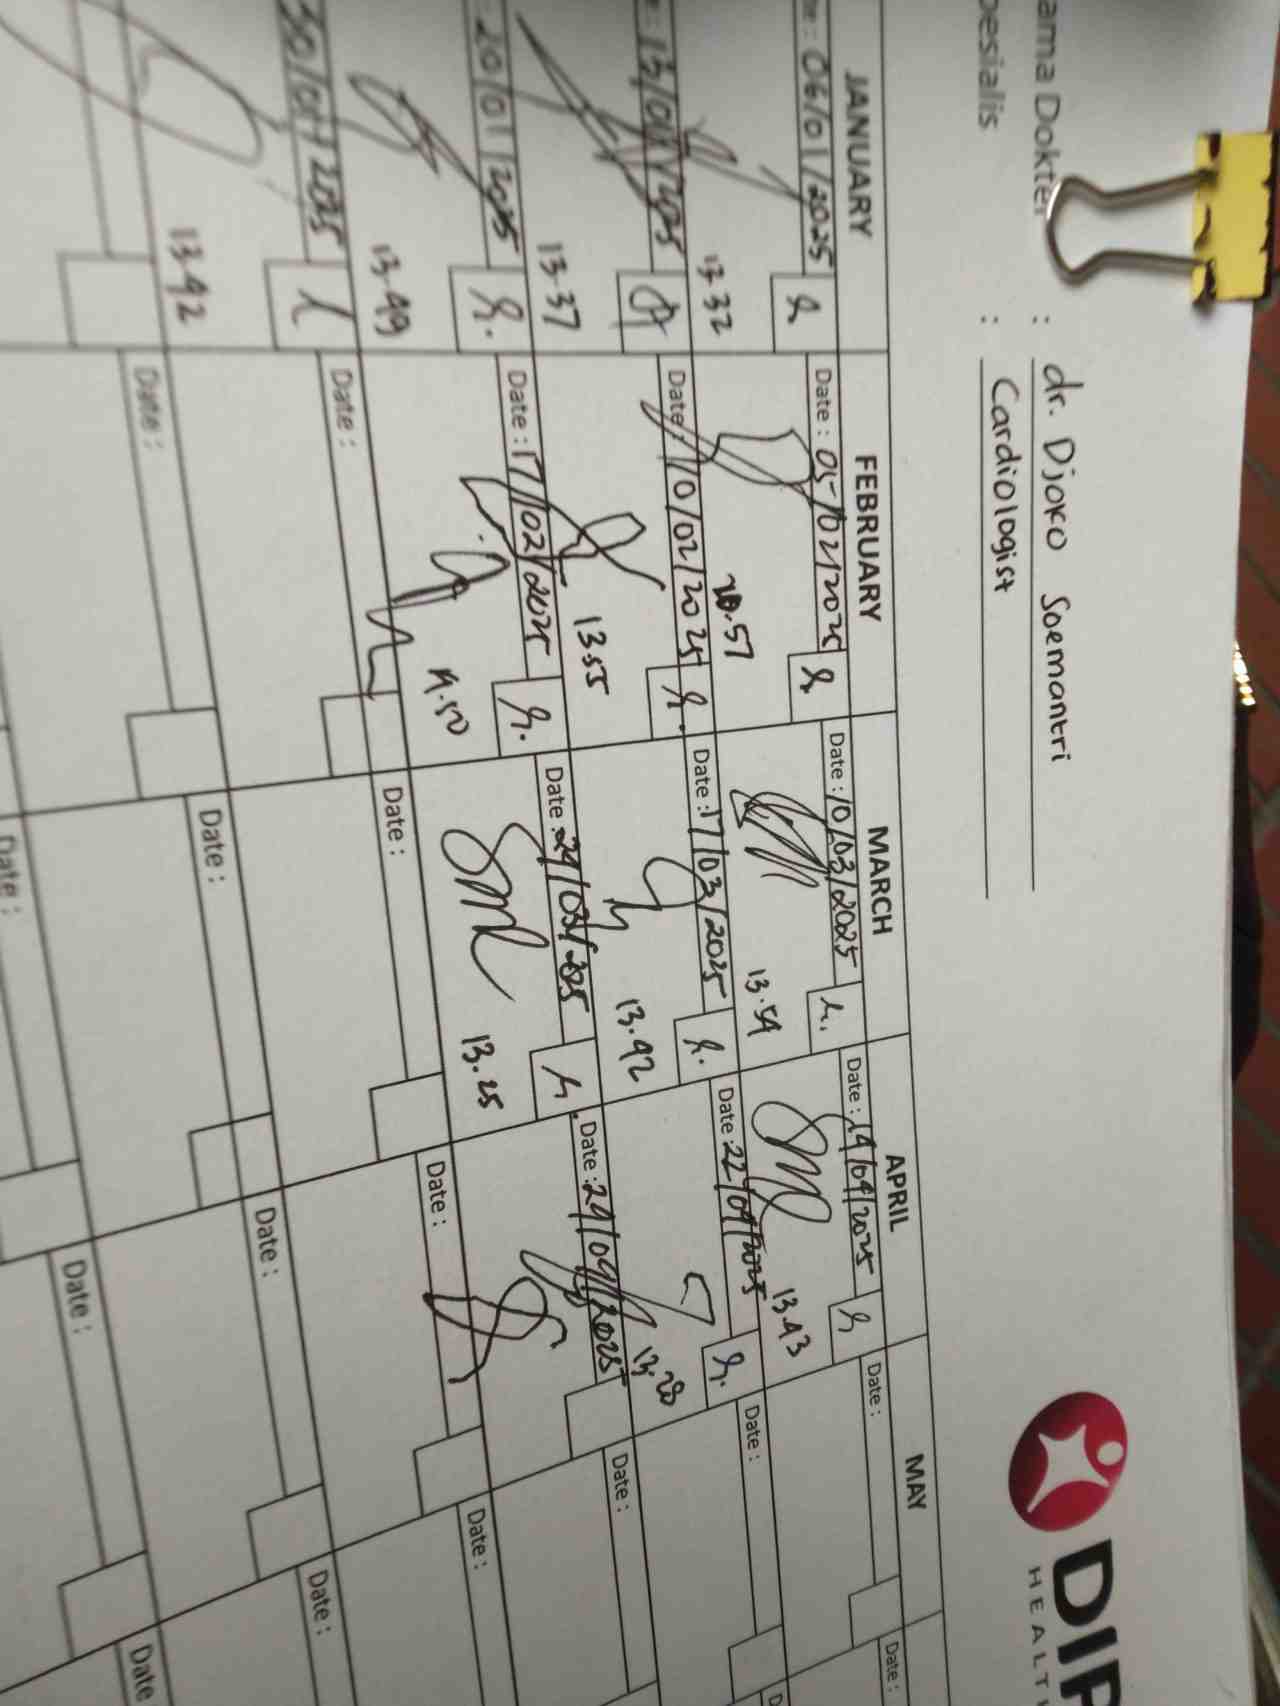 ama Dokter : dr. Djoko Soemantri
pesialis : Cardiologist
DIP
HEALT
JANUARY FEBRUARY MARCH APRIL MAY
te : 06/01/2025 Date : 05/02/2025 Date : 10/03/2025 Date : 14/04/2025 Date : Date :
13.32 13.54 13.43
e : 13/01/2025 Date : 10/02/2025 Date : 17/03/2025 Date : 22/04/2025 Date : D
13.37 13.55 13.42 13.28
: 20/01/2025 Date : 17/02/2025 Date : 24/03/2025 Date : 29/04/2025 Date :
13.49 13.25
30/01/2025 Date : Date : Date : Date :
13.42
Date : Date : Date : Date :
Date : Date : Date